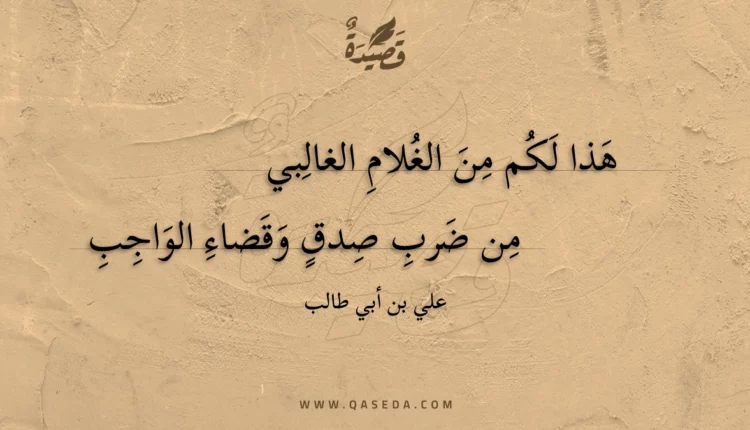 قَصِيدَةٌ
هَذا لَكُم مِنَ الغُلامِ الغالِبي
مِن ضَربِ صِدقٍ وَقَضاءِ الوَاجِبِ
علي بن أبي طالب
WWW.QASEDA.COM